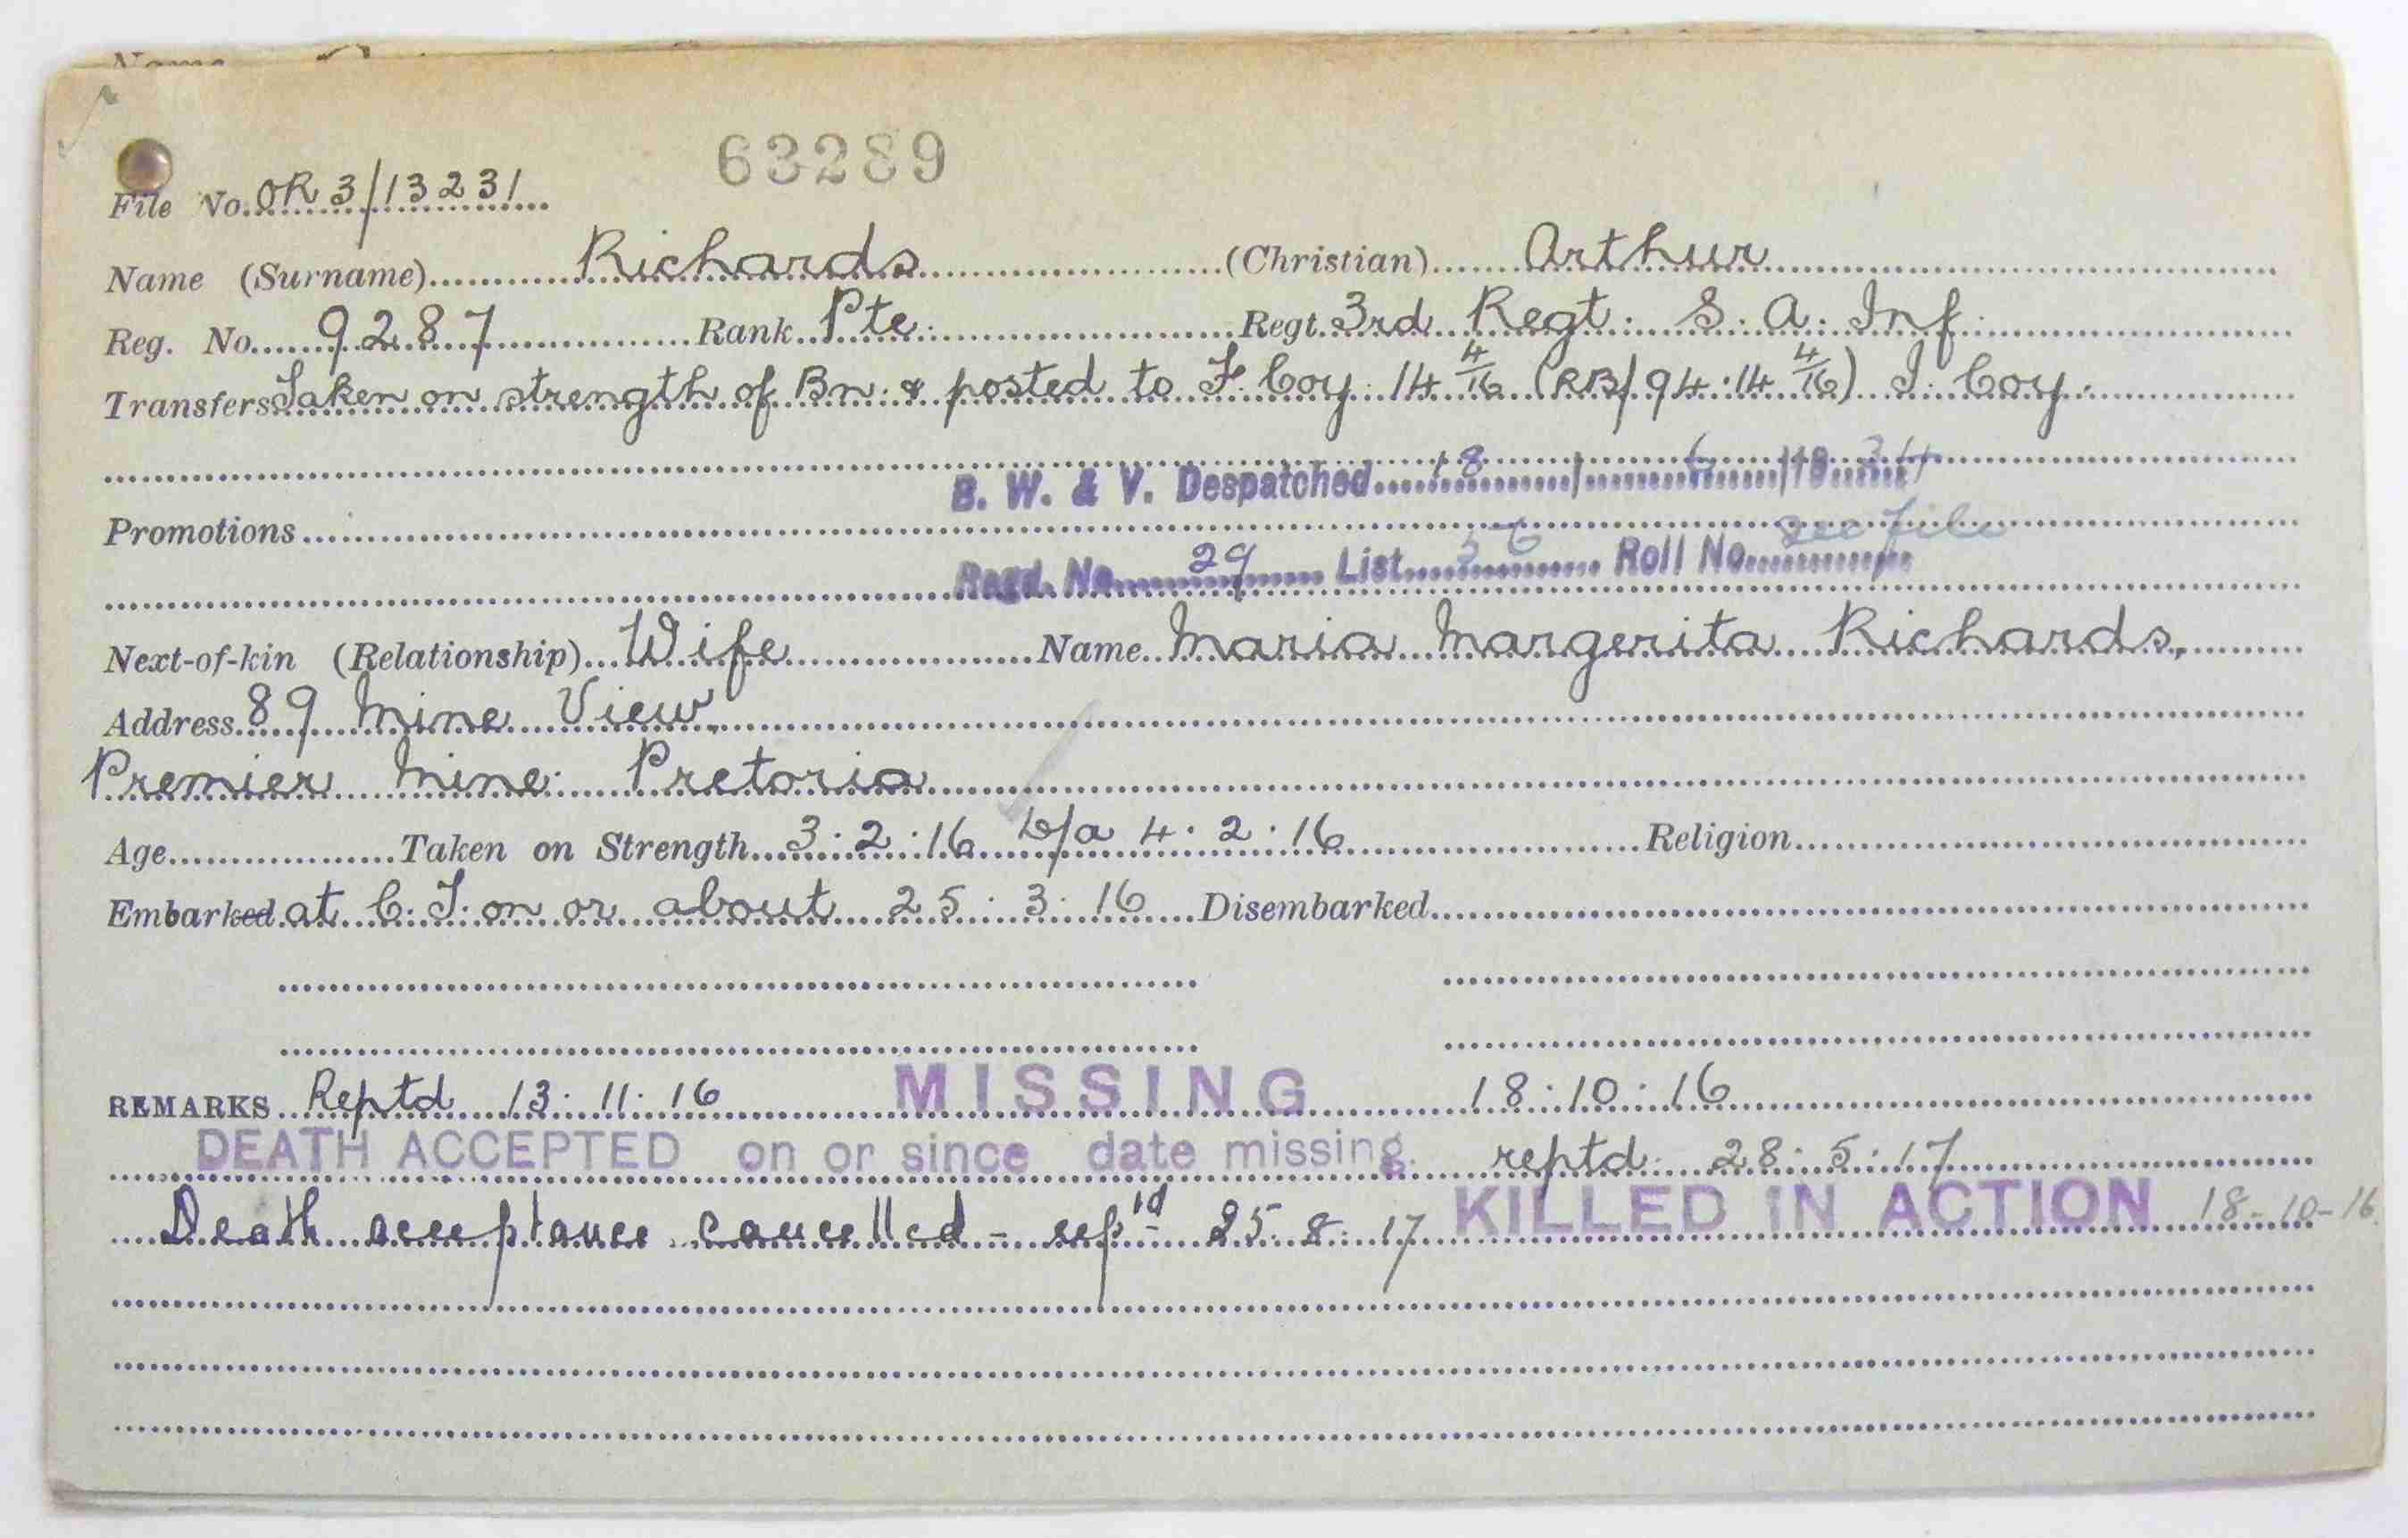 Name
63289
File No. OR 3/13231
Name (Surname) Richards (Christian) Arthur
Reg. No. 9287 Rank Pte. Regt. 3rd Regt. S. A. Inf.
Transfers Taken on strength of Bn. & posted to F. Coy. 14 4/16 (RB/94. 14 4/16) I. Coy.
B. W. & V. Despatched 18 / 6 /19
Promotions See file
Regd. No. 29 List 56 Roll No.
Next-of-kin (Relationship) Wife Name Maria Margerita Richards,
Address 89 Mine View,
Premier Mine. Pretoria
Age Taken on Strength 3.2.16 4.2.16 Religion
Embarked at C. T. on or about 25.3.16 Disembarked
REMARKS Reptd 13.11.16 MISSING 18.10.16
DEATH ACCEPTED on or since date missing. reptd. 28.5.17
Death acceptance cancelled - repd 25.8.17 KILLED IN ACTION 18-10-16